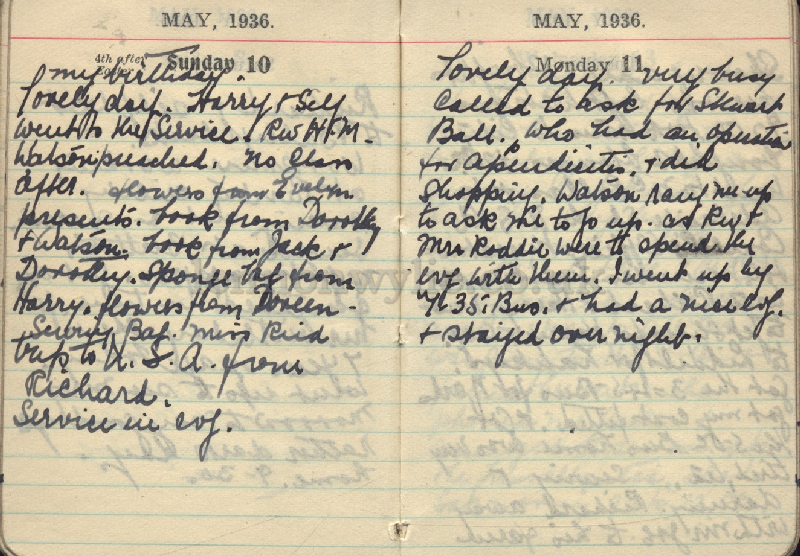 MAY, 1936.
4th after Easter Sunday 10
my birthday.
Lovely day. Harry & Self
went to the Service. Rev H. M.
Watson preached. no class
after. flowers from Evelyn
presents. book from Dorothy
& Watson. book from Jack &
Dorothy. Sponge bag from
Harry. flowers from Doreen -
Sewing Bag. Miss Reid
trip to U. S. A. from
Richard.
Service in evg.
MAY, 1936.
Monday 11
Lovely day. very busy
Called to ask for Stewart
Ball. who had an operation
for apendicitis. & did
Shopping. Watson rang me up
to ask me to go up. as Rev &
Mrs Roddie were to spend the
evg with them. I went up by
7-35. Bus. & had a nice evg.
& stayed over night.